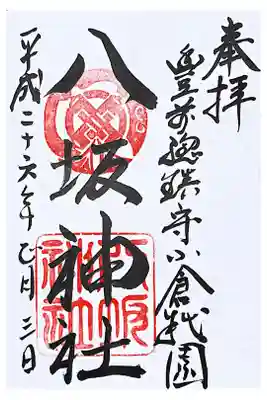 奉拝
豊前總鎮守小倉祇園
八坂神社
平成二十六年月三日